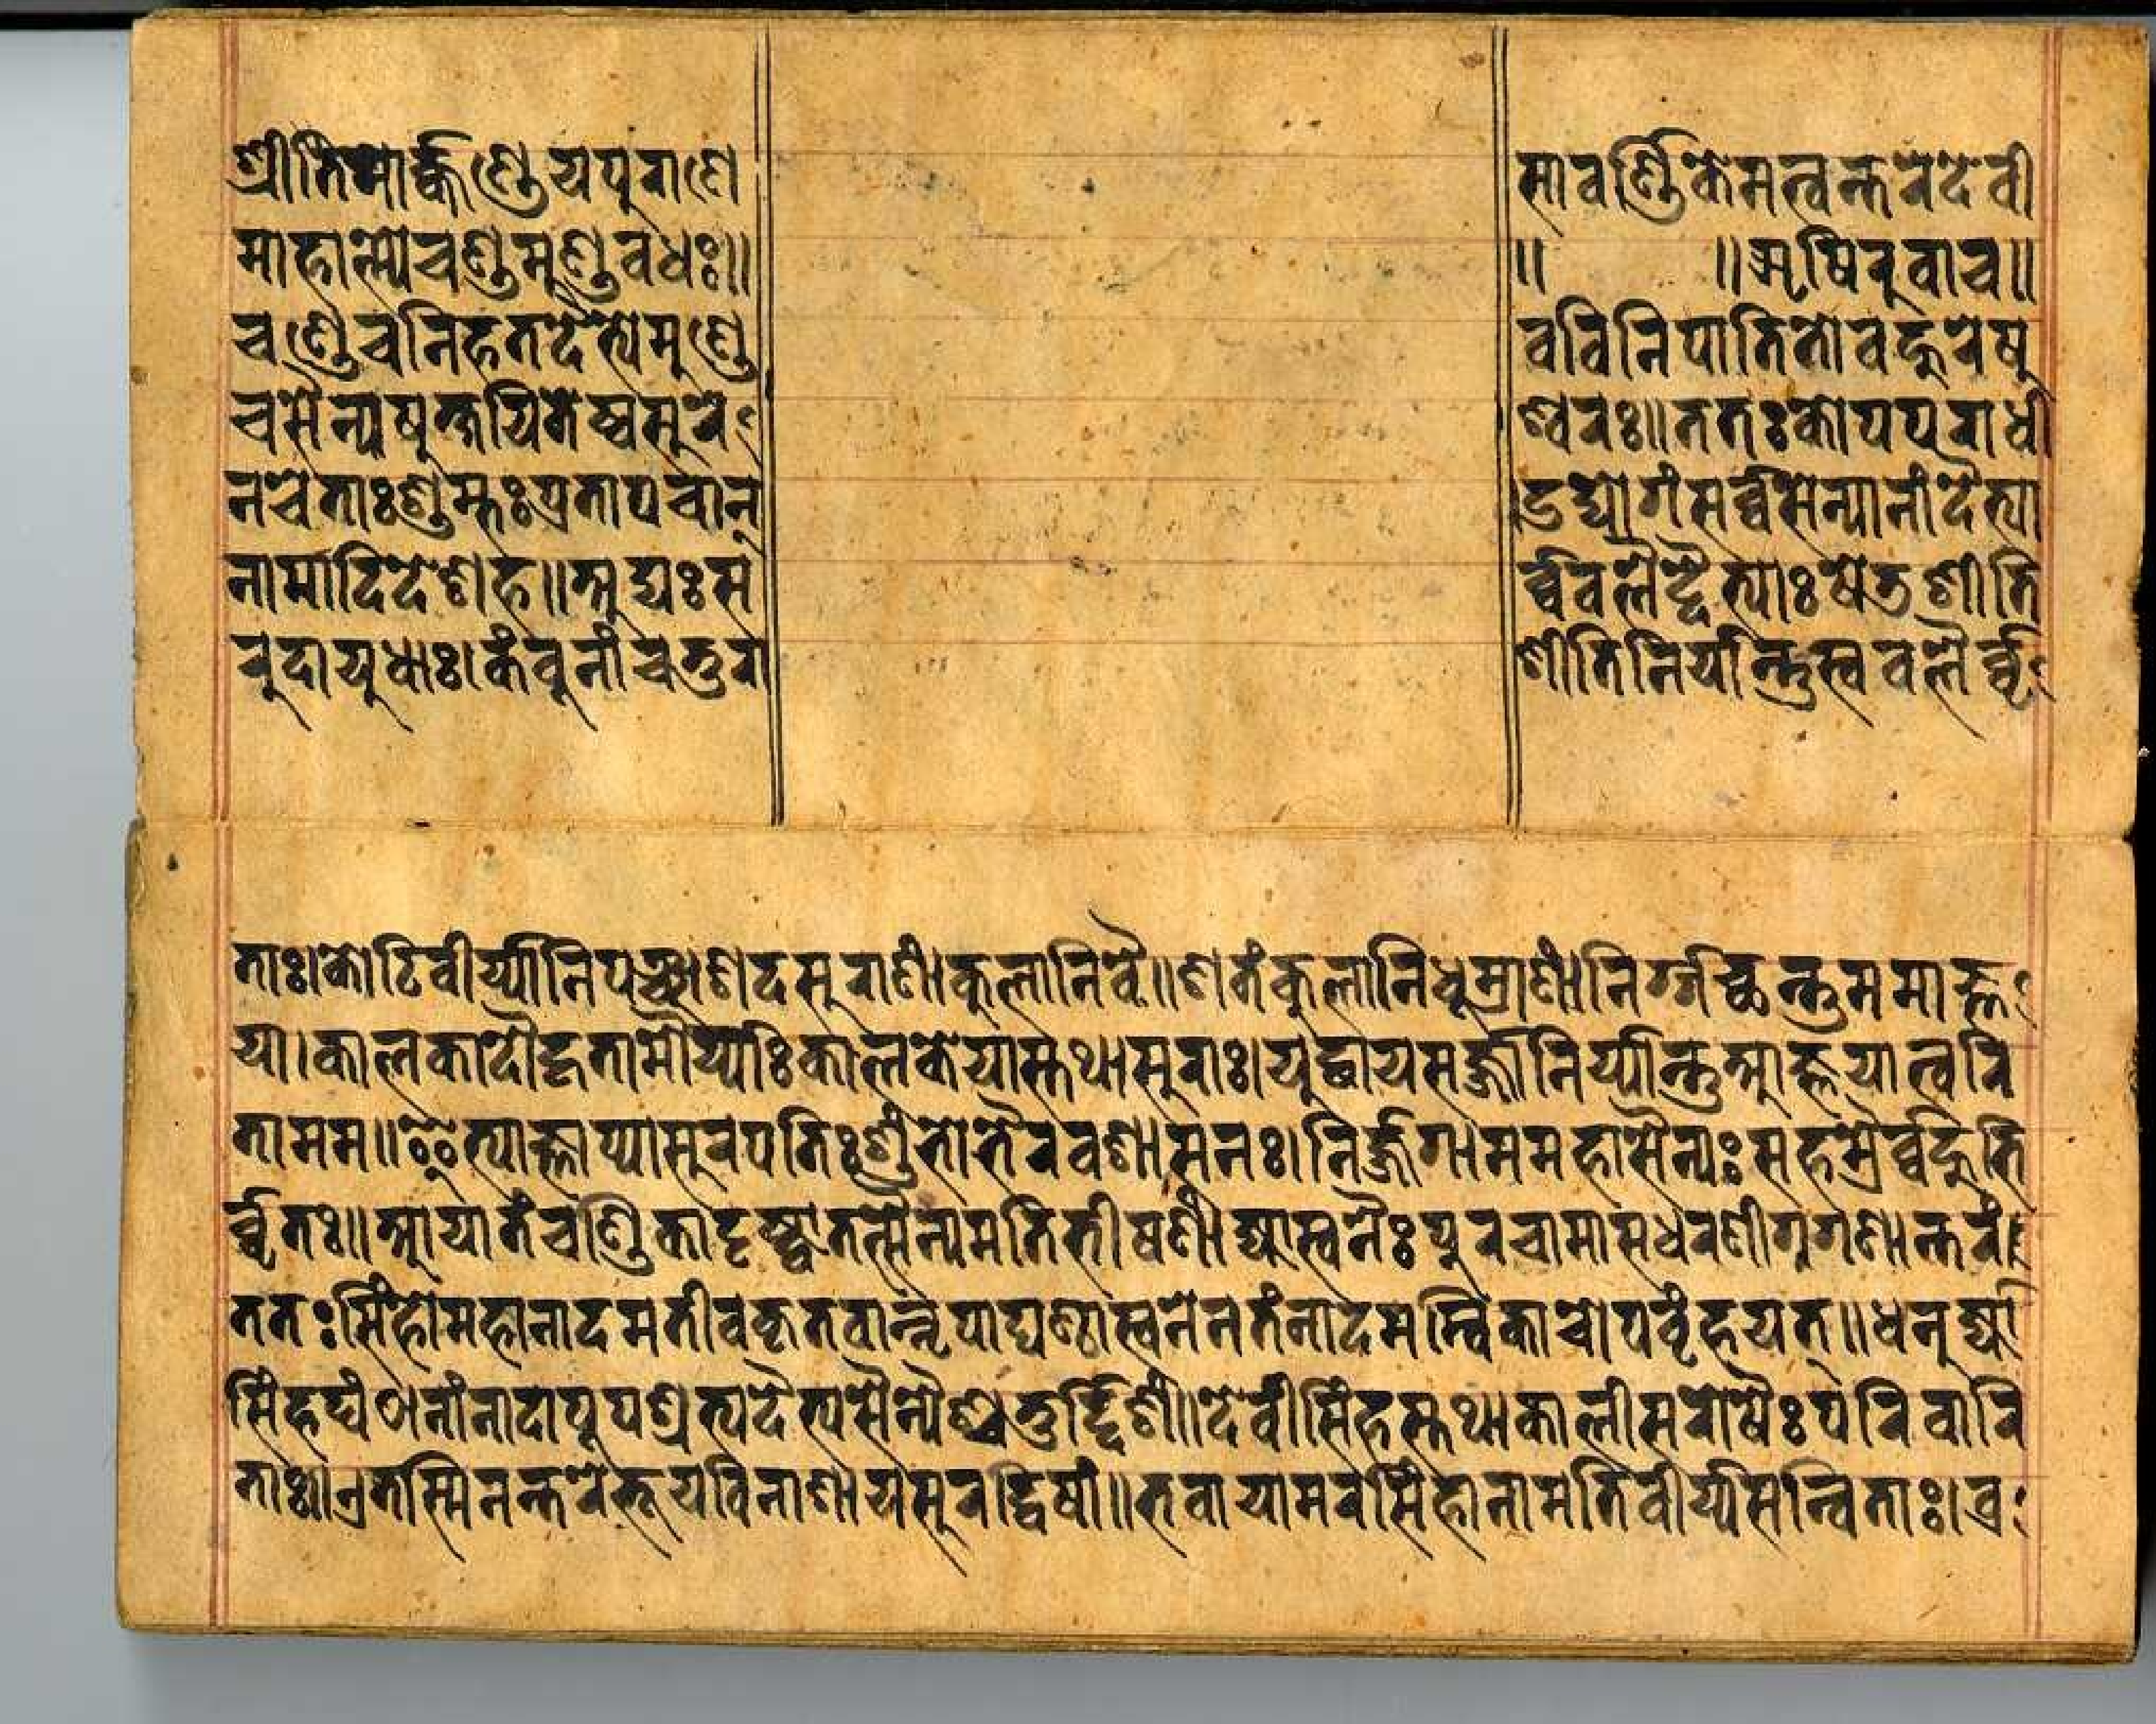 श्रीतिमार्क्कण्डेयपुराणे सावर्ण्णिकेमन्वन्तरेदेवी
माहात्म्येचण्डमुण्डवधः॥ ॥ ॥ऋषिरुवाच॥
चण्डेचनिहतदैत्येमुण्डे वविनिपातितोवहुरेषु
चसैन्यषुक्षयितेष्वसुरे श्वरः॥ततःकोपपराधी
नचेताःशुम्भःप्रतापवान् उद्योगंसर्व्वसेन्यानांदैत्या
नामादिदेशह॥अद्यःस र्व्ववलैर्द्दैत्याःषेडशीति
रुदायुधाः।कंवुनांचतुरा शीतिनिर्यान्तुस्ववलैर्व्वृ
ताः।कोटिवीर्य्यानिपञ्चाशदसुराणांकुलानिवै॥शतंकुलानिधूम्राणांनिर्ग्गच्छन्तुममाज्ञ
या।कालकादौर्द्दृतामौर्य्याःकालकेयास्तथासुराः।युद्धायसर्ज्जानिर्य्यान्तुआज्ञयात्वरि
तामम॥इत्याज्ञाप्यासुरपतिःशुंभोभैरवशासनः।निर्ज्जगाममहासैन्यःसहस्रैर्व्वहुभि
र्व्वृतः॥आयातंचण्डिकादृष्ट्वातत्सैन्यमतिभीषणं।ज्यास्वनैःपुरयामासधरणीगगणान्तरं।
ततःसिंहोमहानादमतीवकृतवान्नृपाघण्ठास्वनेनतंनादमम्विकाचोपवृंहयत्॥धनुर्ज्या
सिंहघंठानांनादापूपश्रत्यदैत्यसैन्यैश्चतुर्द्दिशं।देवीसिंहस्तथाकालीसरोषैःपरिवारि
ताः॥त्रतस्मिनन्तरेभूयविनाशायसुरद्विषां॥भवायामरसिंहानामतिवीर्य्यसन्विताः।व्र